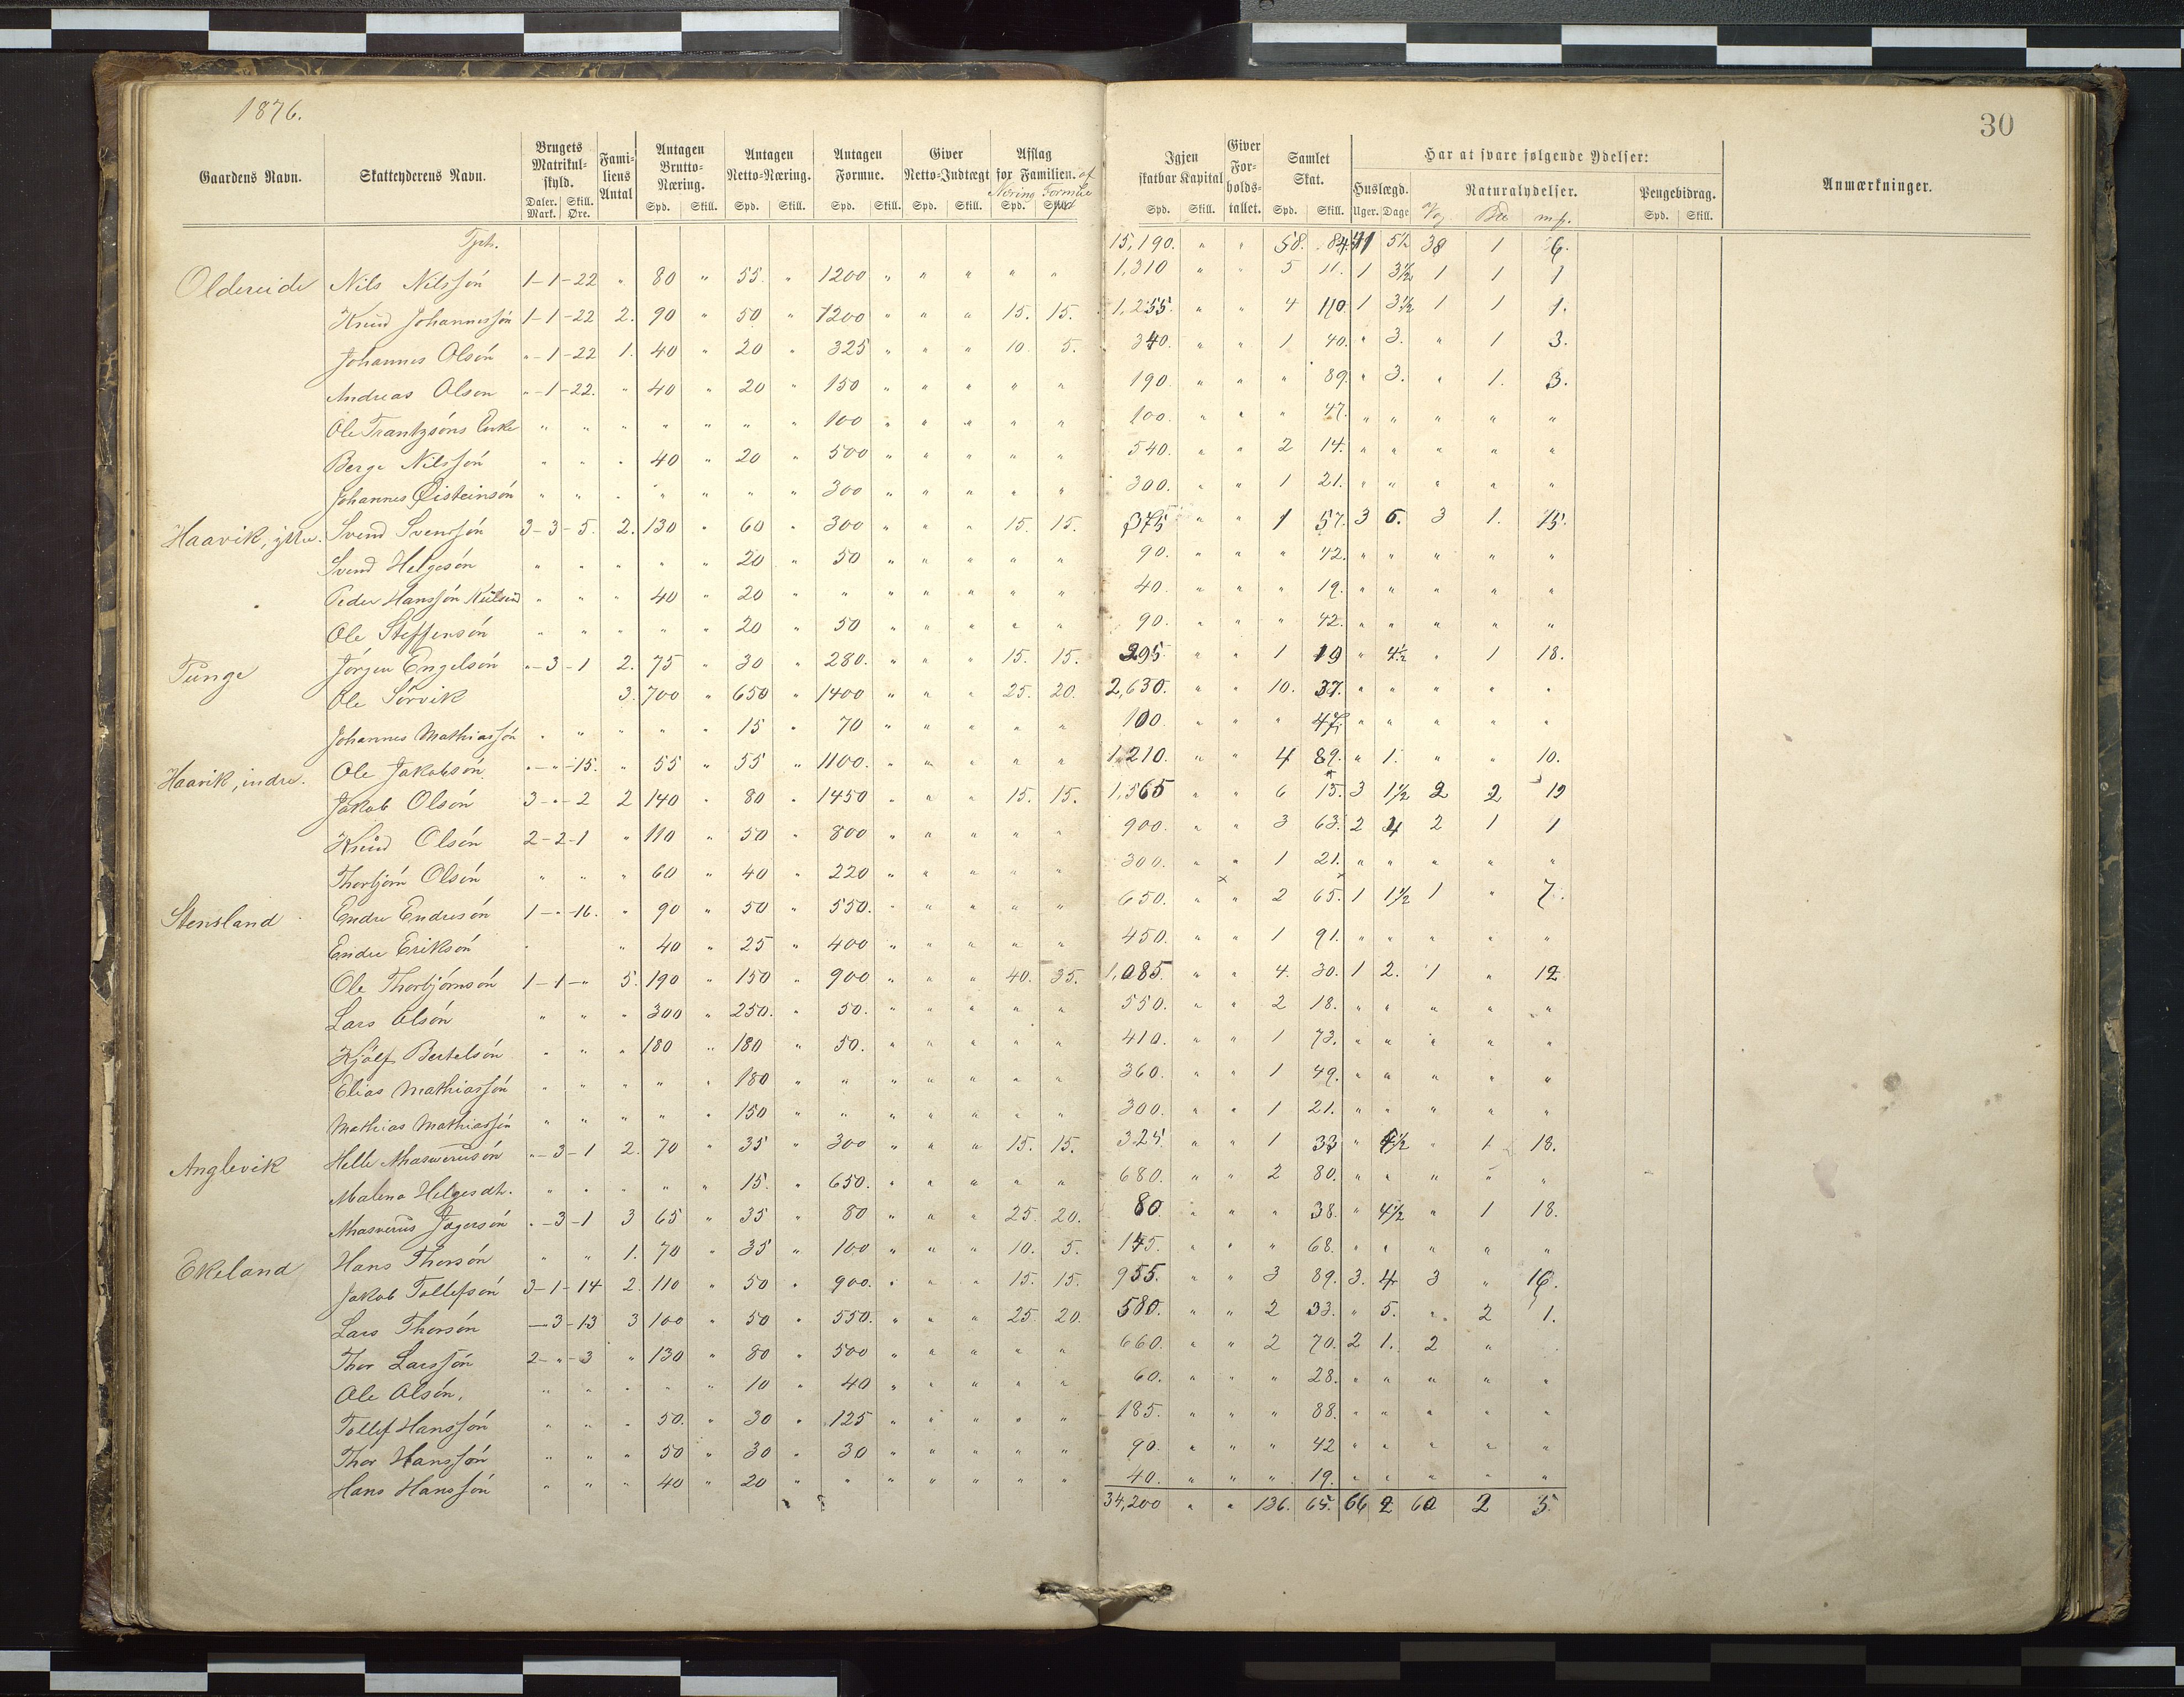 1876.
30
Gaardens Navn. Skatteyderens Navn. Brugets Matrikul-skyld. Fami-liens Antal Antagen Brutto-Næring. Antagen Netto-Næring. Antagen Formue. Giver Netto-Indtægt Afslag for Familien. af Igjen skatbar Kapital Giver For-holds-tallet. Samlet Skat. Har at svare følgende Ydelser: Anmærkninger.
Huslægd. Naturalydelser. Pengebidrag.
Daler. Mark. Skill. Øre. Spd. Skill. Spd. Skill. Spd. Skill. Spd. Skill. Næring Spd. Formue Spd. Skill. Spd. Skill. Uger. Dage Spd. Skill.
15,190. " " 58. 84. 41 5½ 38 1 6.
Oldereide Nils Nilssøn 1-1-22 " 80 " 55 " 1200 " " " " " 1,310 " " 5 11. 1 3½ 1 1 1
Knud Johannessøn 1-1-22 2. 90 " 50 " 1200 " " " 15. 15. 1,255. " " 4 110. 1 3½ 1 1 1.
Johannes Olsøn "-1-22 1. 40 " 20 " 325 " " " 10. 5. 340. " " 1 40. " 3. " 1 3.
Andreas Olsøn "-1-22. " 40 " 20 " 150 " " " " " 190. " " " 89. " 3. " 1. 3.
Ole Frantzsøns Enke " " " " " " " 100 " " " " " 100. " " " 47. " " " " "
Berge Nilssøn " " " 40 " 20 " 500 " " " " " 540. " " 2 14. " " " " "
Johannes Øisteinsøn " " " " " " " 300 " " " " " 300. " " 1 21. " " " " "
Haavik, ytre. Svend Svenssøn 3-3-5. 2. 130 " 60 " 300 " " " 15. 15. 375 " " 1 57. 3 6. 3 1. 15.
Svend Helgesøn " " " " " 20 " 50 " " " " " 90. " " " 42. " " " " "
Peder Hanssøn " " " 40 " 20 " " " " " " " 40. " " " 19. " " " " "
Ole Steffensøn " " " " " 20 " 50 " " " " " 90. " " " 42. " " " " "
Punge Jørgen Engelsøn "-3-1 2. 75 " 30 " 280. " " " 15. 15. 295 " " 1 19 " 4½ " 1 18.
Ole Sørvik 3. 700 " 650 " 1400 " " " 25. 20. 2,630. " " 10. 37. " " " " "
Johannes Mathiassøn " " " " " 15 " 70 " " " " " 100. " " " 47. " " " " "
Haavik, indre. Ole Jakobsøn. "-"-15. " 55 " 55 " 1100. " " " " " 1,210. " " 4 89. " 1. " " 10.
Jakob Olsøn 3-"-2 2 140 " 80 " 1450 " " " 15. 15. 1,565 " " 6 15. 3 1½ 2 2 12
Knud Olsøn 2-2-1 " 110 " 50 " 800 " " " " " 900. " " 3 63. 2 4 2 1 1
Thorbjørn Olsøn " " " 60 " 40 " 220 " " " " " 300. " " 1 21. " " " " "
Stensland Endre Endresøn 1-"-16. " 90 " 50 " 550. " " " " " 650. " " 2 65. 1 1½ 1 " 7.
Endre Eriksøn " " 40 " 25 " 400 " " " " " 450. " " 1 91. " " " " "
Ole Thorbjørnsøn 1-1-" 5. 190 " 150 " 900 " " " 40. 35. 1,085. " " 4. 30. 1 2. 1 " 12
Lars Olsøn " " " 300 " 250. " 50. " " " " " 550. " " 2 18. " " " " "
Bertelsøn " " " 180 " 180 " 50. " " " " " 410. " " 1 73. " " " " "
Elias Mathiassøn " " " " " 180 " " " " " " " 360. " " 1 49. " " " " "
Mathias Mathiassøn " " " " " 150 " " " " " " " 300. " " 1 21. " " " " "
Anglevik Helle "-3-1 2. 70 " 35 " 300 " " " 15. 15. 325. " " 1 33 " 4½ " 1. 18.
Malena Helgesdh. " " " " " 15. " 650. " " " " " 680. " " 2 80. " " " " "
"-3-1 3 65 " 35 " 80 " " " 25. 20. 80. " " " 38. " 4½ " 1 18.
Ekeland Hans Thorsøn " " 1. 70 " 35 " 100 " " " 10. 5. 145. " " " 68. " " " " "
Jakob Tollefsøn 3-1-14 2. 110 " 50 " 900. " " " 15. 15. 955. " " 3 89. 3. 4 3 " 16.
Lars Thorsøn -3-13 3 100 " 50 " 550. " " " 25. 20. 580. " " 2 33. " 5. " 2 1.
Thor Larssøn 2-"-3 " 130 " 80 " 500 " " " " " 660. " " 2 70. 2 1. 2 "
Ole Olsøn. " " " " " 10 " 40 " " " " " 60. " " " 28. " " " " "
Tollef Hanssøn " " " 50. " 30 " 125 " " " " " 185. " " " 88. " " " " "
Thor Hanssøn " " " 50 " 30 " 30 " " " " " 90. " " " 42 " " " " "
Hans Hanssøn " " " 40 " 20 " " " " " " " 40. " " " 19. " " " " "
34,200 " " 136. 65. 66 2 60 2 5.